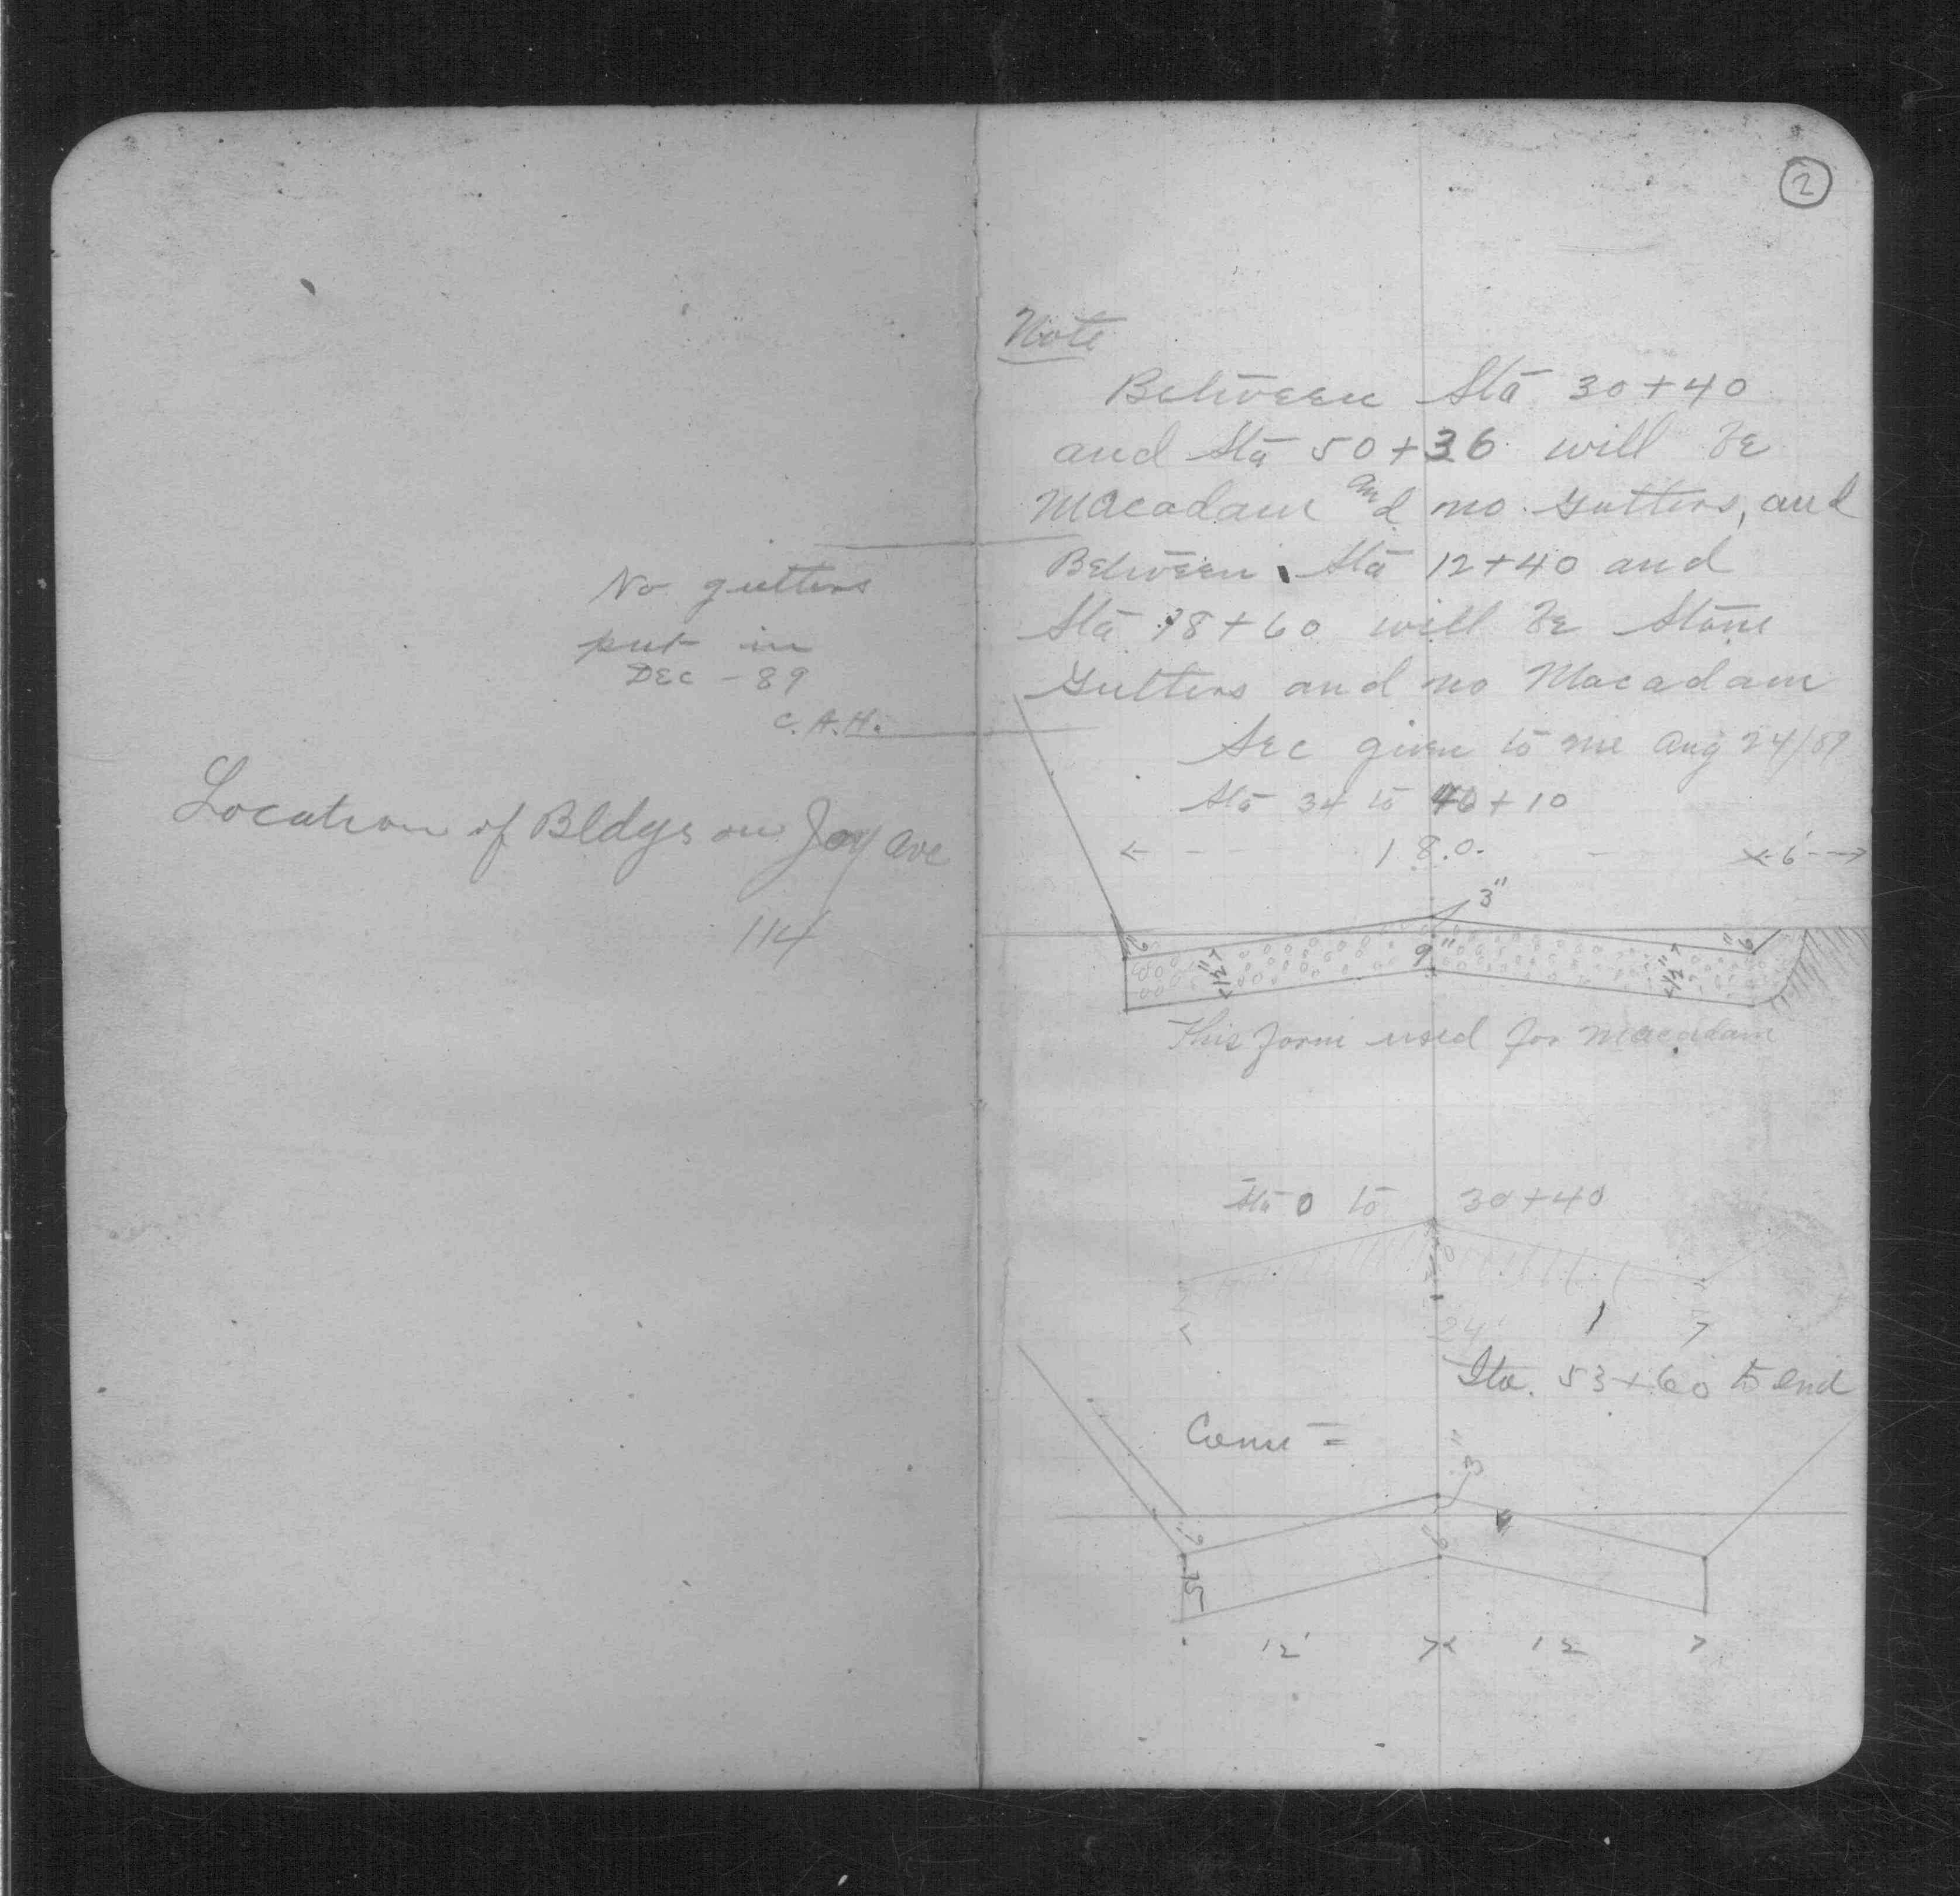 No gutters
put in
Dec - 89
C. A. H.
Location of Bldgs on Joy ave
114
2
Note
Between Sta 30+40
and Sta 50+36 will be
Macadam and no gutters, and
Between Sta 12+40 and
Sta 18+60 will be Stone
Gutters and no Macadam
Sec given to me Aug 24/89
Sta 34 to 46+10
18.0
6'
3"
6"
9"
6"
This form used for macadam
Sta 0 to 30+40
24'
Sta. 53+60 to end
3"
6"
6
12'
12